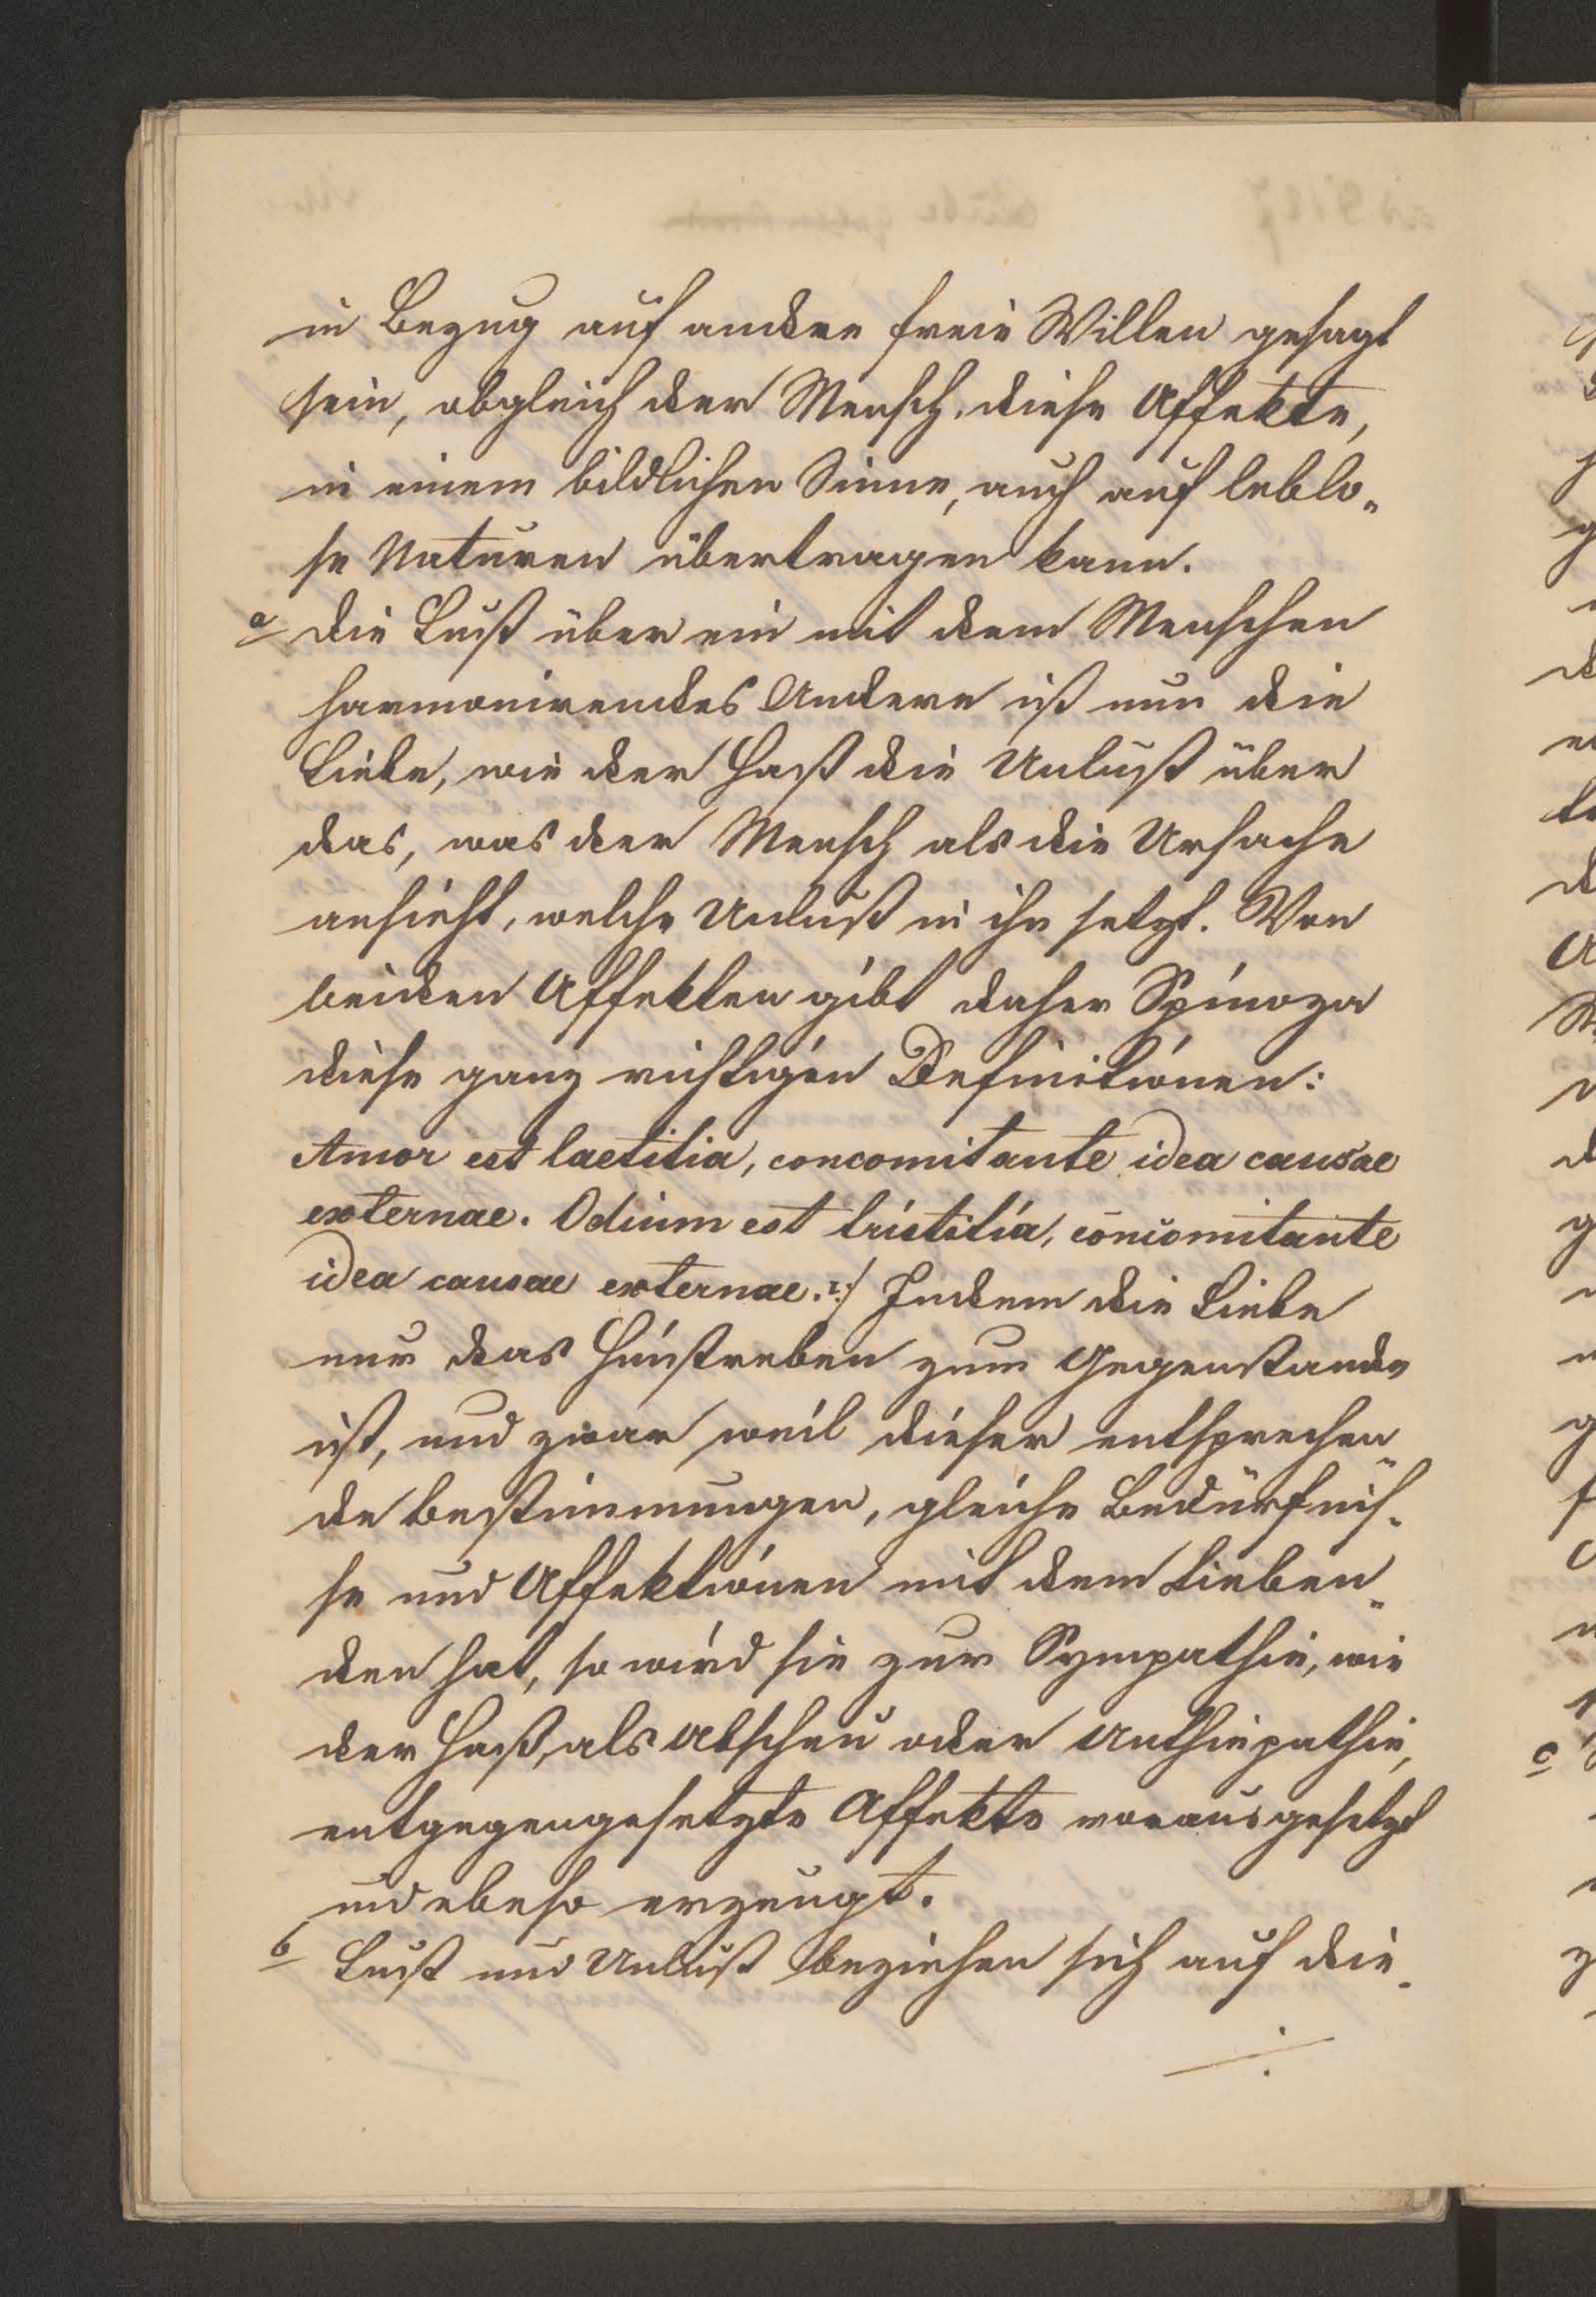 in Bezug auf andere freie Willen gesagt
sein, obgleich der Mensch, diese Affekte,
in einem bildlichen Sinne, auch auf leblo-
se Naturen übertragen kann.
a Die Lust über ein mit dem Menschen
harmonirendes Andere ist nun die
Liebe, wie der Haß die Unlust über
das, was der Mensch als die Ursache
ansieht, welche Unlust in ihn setzt. Von
beiden Affekten gibt daher Spinoza
diese ganz richtigen Definitionen:
Amor est laetitia, concomitante idea causae
externae. Odium est tristitia, concomitante
idea causae externae. Indem die Liebe
nur das Hinstreben zum Gegenstande
ist, und zwar weil dieser entsprechen-
de Bestimmungen, gleiche Bedürfnis-
se und Affektionen mit dem Lieben-
den hat, so wird sie zur Sympathie, wie
der Haß, als Abscheu oder Anthiepathie,
entgegengesetzte Affekte vorausgesetzt
und ebeso erzeugt.
b Lust und Unlust beziehen sich auf die-